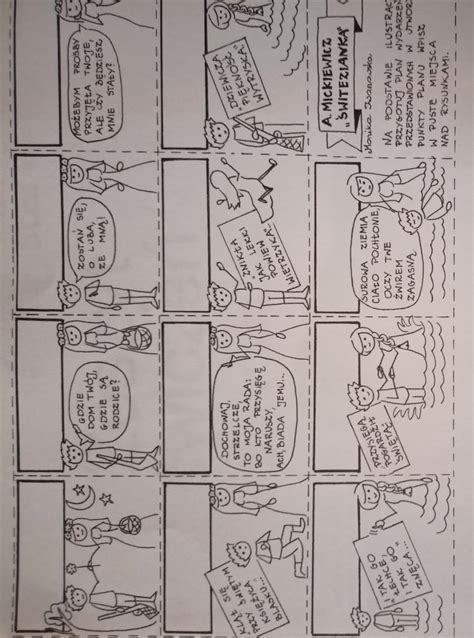 MOŻEBYM PROŚBY
PRZYJĘŁA TWOJE,
ALE CZY BĘDZIESZ
MNIE STAŁY?
ZOSTAŃ SIĘ,
O LUBA,
ZE MNĄ!
GDZIE
DOM TWÓJ,
GDZIE SĄ
RODZICE?
KLĄŁ SIĘ
PRZY ŚWIĘTYM
KSIĘŻYCA
BLASKU...
DOCHOWAJ,
STRZELCZE,
TO MOJA RADA:
BO KTO PRZYSIĘGĘ
NARUSZY,
ACH, BIADA JEMU...
ZNIKŁA
JAK LEKKI
POWIEW
WIETRZYKA.
DZIEWICZA
PIĘKNOŚĆ
WYTRYSKA.
I TAK GO
ŁECHCE
I TAK GO
ZNĘCA...
PRZYSIĘGĄ
POGARDZIŁ
ŚWIĘTĄ
SUROWA ZIEMIA
CIAŁO POCHŁONIE,
OCZY TWE
ŻWIREM
ZAGASNĄ.
A. MICKIEWICZ
„ŚWITEZIANKA"
Monika Iwanowska
NA PODSTAWIE ILUSTRACJI
PRZYGOTUJ PLAN WYDARZEŃ
PRZEDSTAWIONYCH W UTWORZE
PUNKTY PLANU WPISZ
W PUSTE MIEJSCA
NAD RYSUNKAMI.